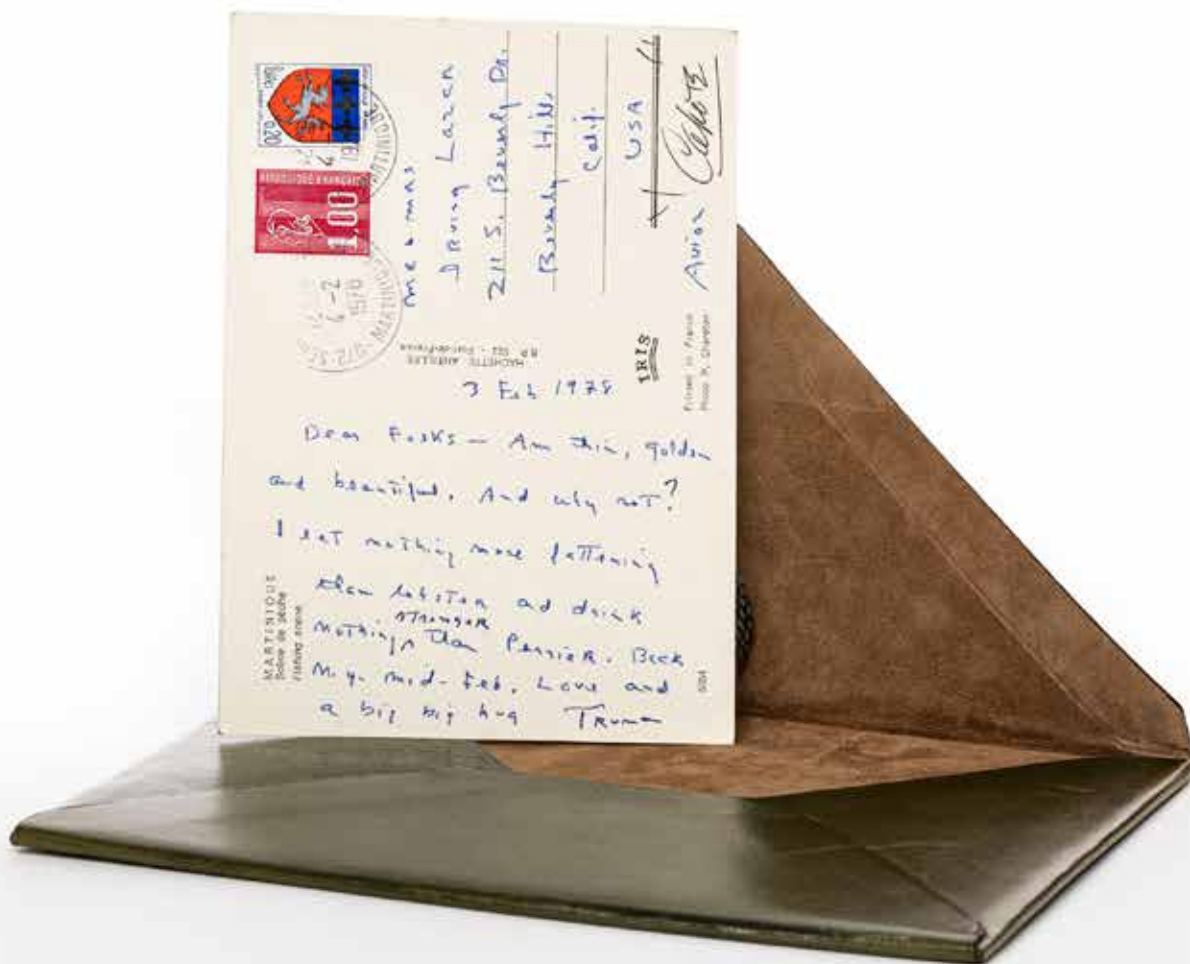 0.20
1.00
MARTINIQUE
4-2
1978
MARTINIQUE
Mr & Mrs
Irving Lazar
211 S. Beverly Dr.
Beverly Hills
Calif.
USA
Avion
Capote
HACHETTE ANTILLES
Fort-de-France
IRIS
Printed in France
Photo
3 Feb 1978
Dear Folks — Am thin, golden
and beautiful. And why not?
I eat nothing more fattening
than lobster and drink
nothing stronger than Perrier. Back
N.Y. mid-Feb. Love and
a big big hug Truman
MARTINIQUE
Scène de pêche
Fishing scene